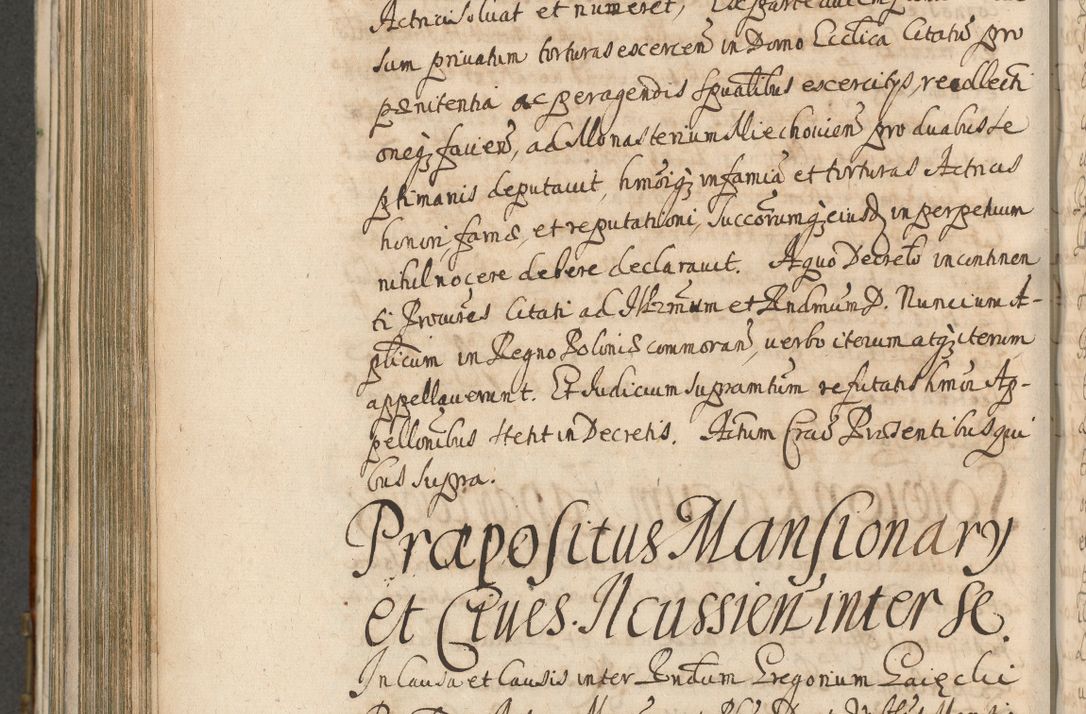 Actrici soluat et numeret,
sum priuatum torturas escercen̄ in Domo Ecclīca Citatū pro
pœnitentia ac peragendis spūalibus escercitys, recollecti
oneq̢ facien̄, ad Monasterium Miechouien̄ pro duabus se
ptimanis deputauit, hmōiq̢ infamiā et torturas Actricis
honori, famæ, et reputationi, Successorumq̢ eiusd̄ in perpetuum
nihil nocere debere declarauit. A quo Decreto incontinen
ti Procures Citati ad Illrmum et Rndmum D. Nuncium A-
plīcum in Regno Poloniæ commoran̄, uerbo iterum atq̢ iterum
appellauerunt. Et Iudicium supramtum refutatis hmōi Ap-
pellōnibus stetit in Decretis. Actum Crac̄ Præsentibus qui
bus supra.
Præpositus Mansionary
et Ciues Ilcussien̄ inter se.
In Causa et Causis inter Rndum Gregorium